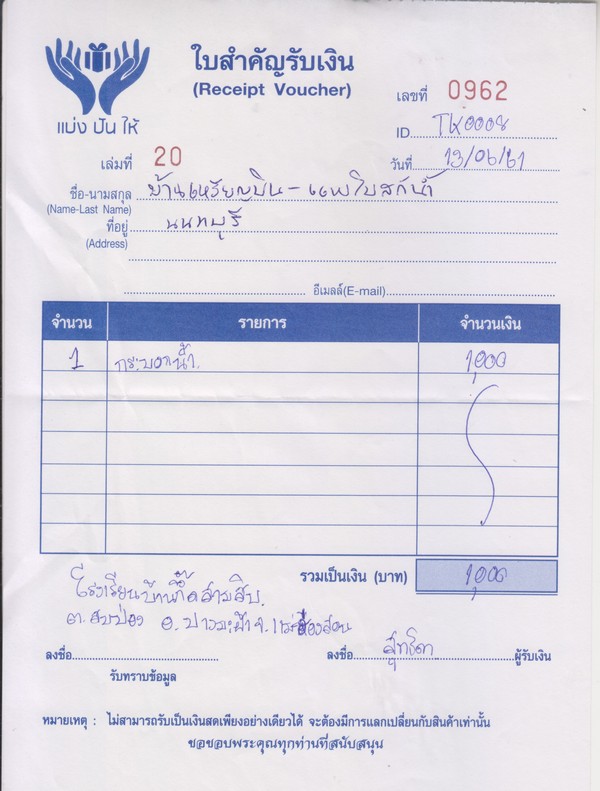 ใบสำคัญรับเงิน
(Receipt Voucher)
แบ่ง ปัน ให้
เลขที่ 0962
ID TK0008
เล่มที่ 20
วันที่ 13/06/61
ชื่อ-นามสกุล บ้านเหรียญบิน-แพใบสก๊าน้ำ
(Name-Last Name)
ที่อยู่ นนทบุรี
(Address)
อีเมลล์(E-mail)
จำนวน รายการ จำนวนเงิน
1 กระบอกน้ำ 1,000
รวมเป็นเงิน (บาท) 1,000
โรงเรียนบ้านกึ้ดสามสิบ
ต.สบป่อง อ.ปางมะผ้า จ.แม่ฮ่องสอน
ลงชื่อ ลงชื่อ สุทธิดา ผู้รับเงิน
รับทราบข้อมูล
หมายเหตุ : ไม่สามารถรับเป็นเงินสดเพียงอย่างเดียวได้ จะต้องมีการแลกเปลี่ยนกับสินค้าเท่านั้น
ขอขอบพระคุณทุกท่านที่สนับสนุน